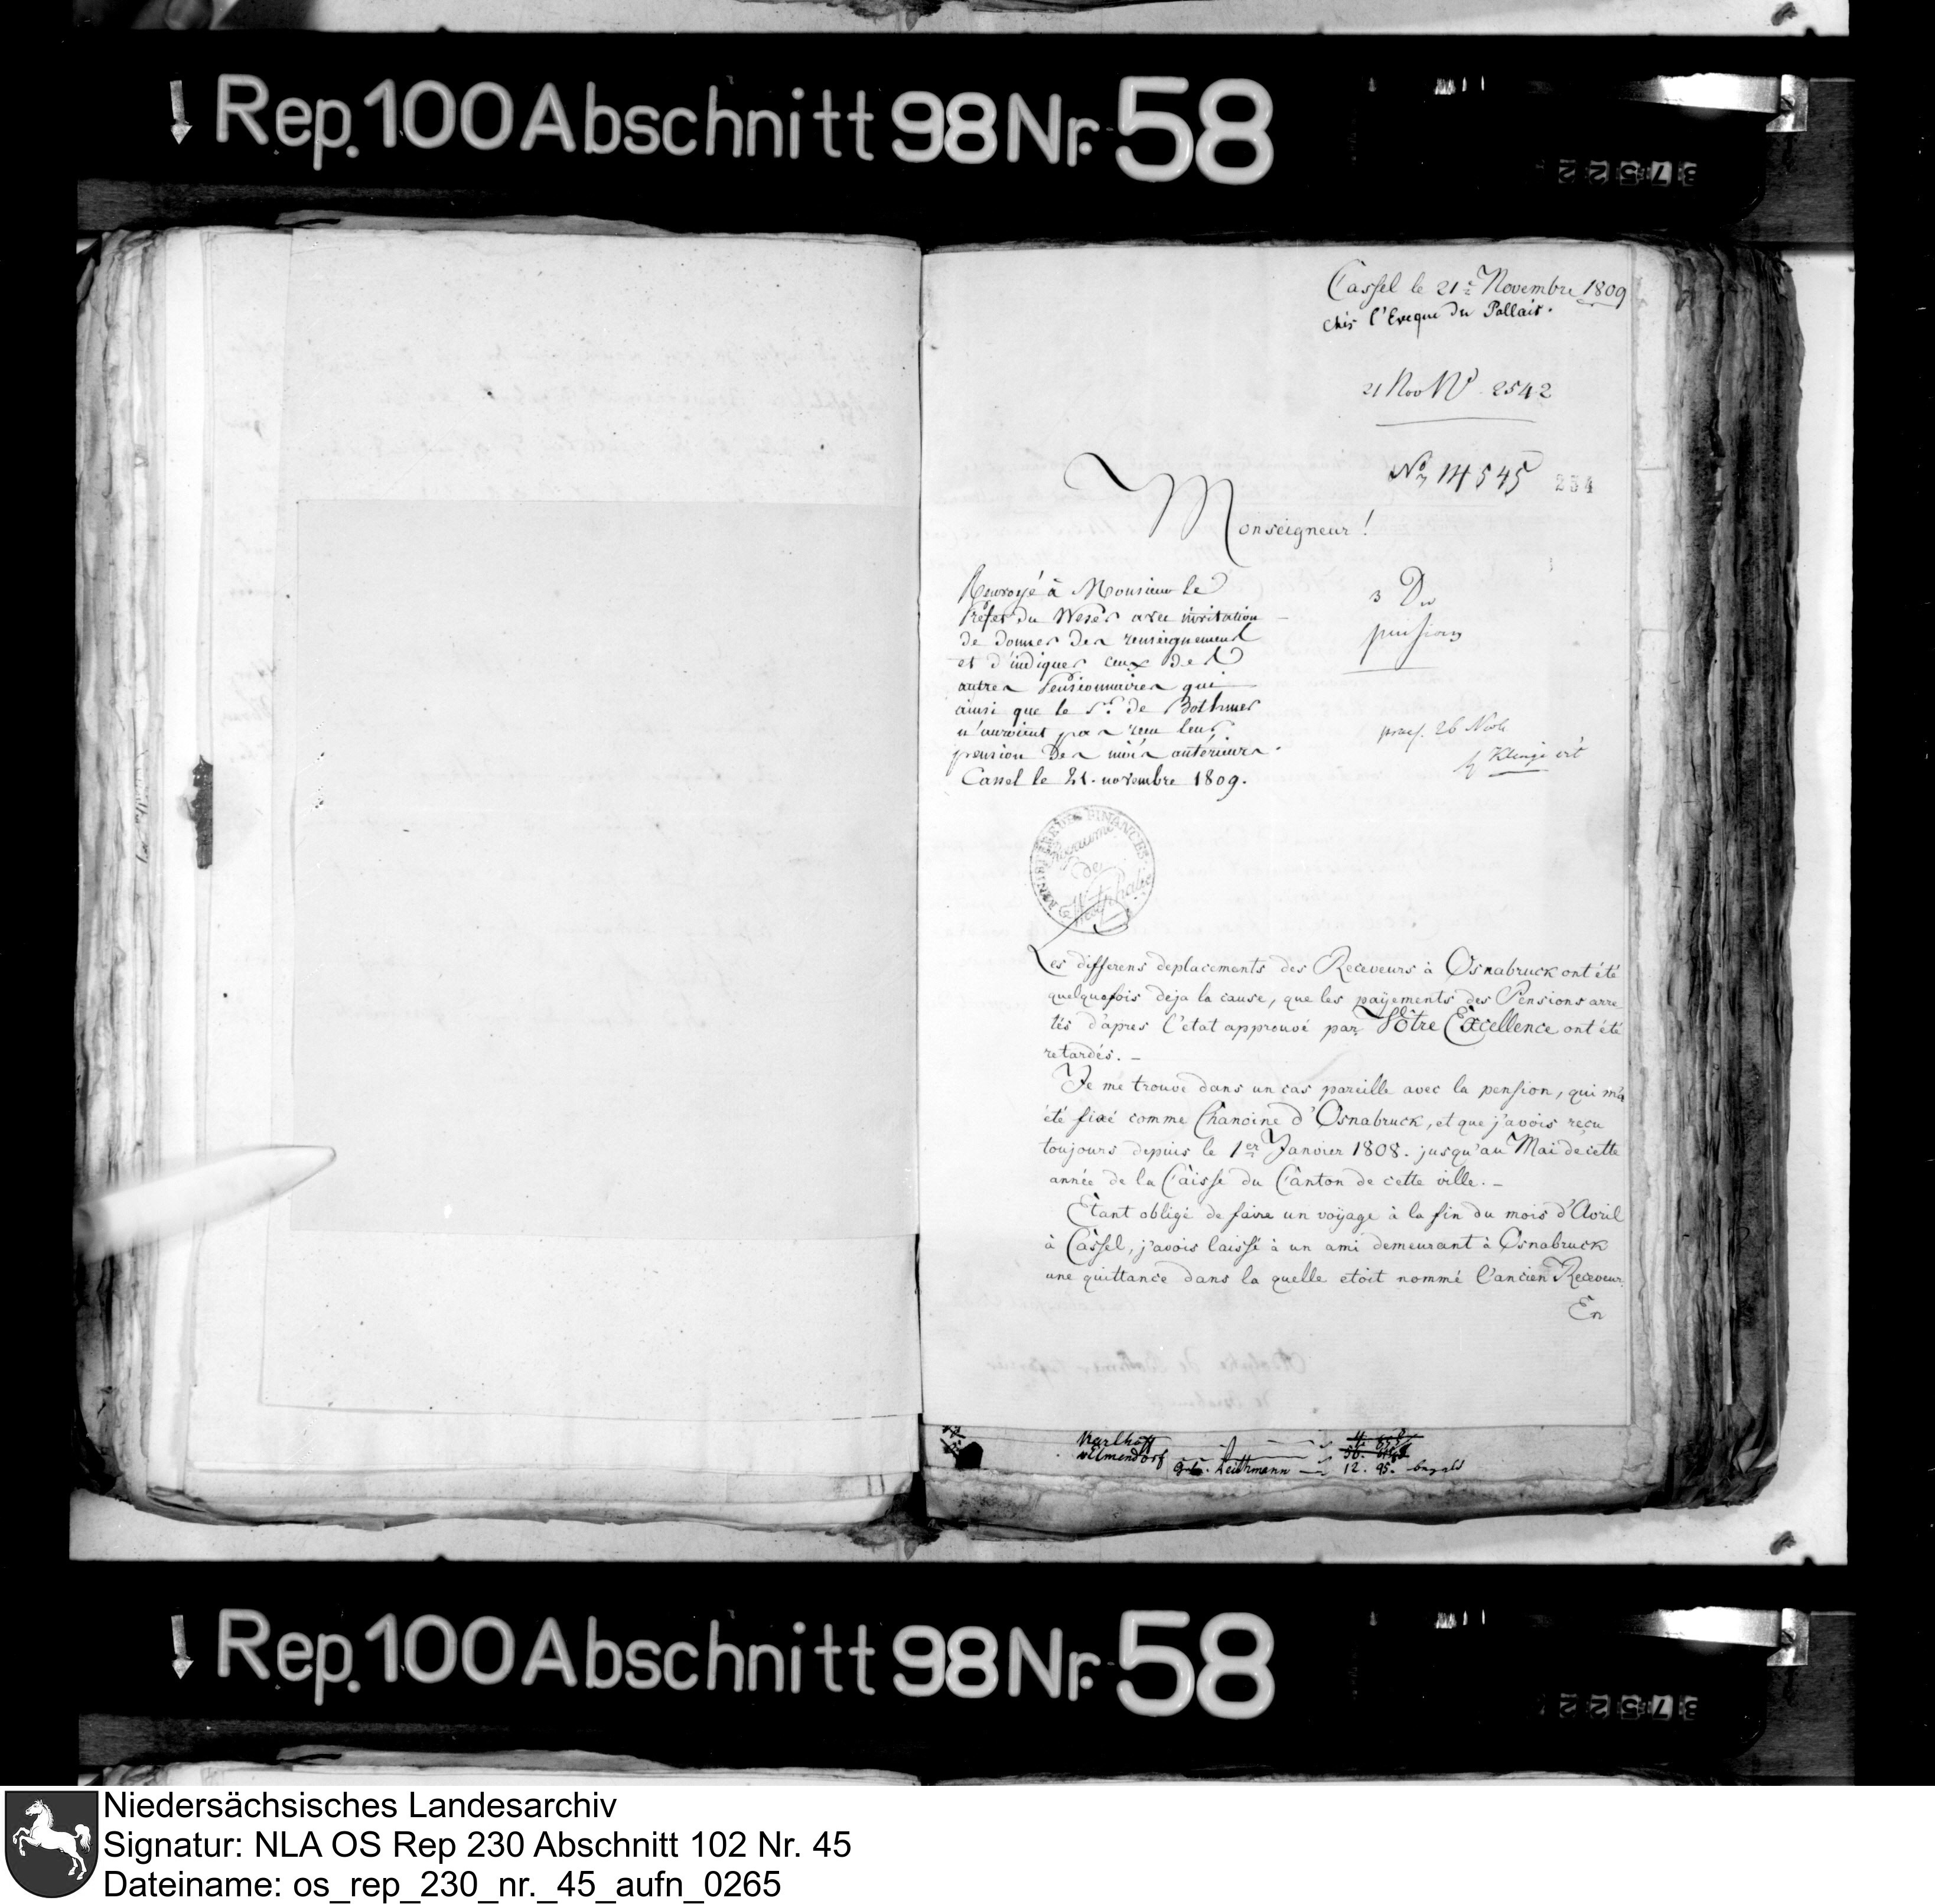 Rep. 100 Abschnitt 98 Nr. 58
37522
Cassel le 21e Novembre 1809
chés l'Eveque du Pallais.
21 Nov Nº 2542
Nº 14545
254
Monseigneur!
Renvoyé à Monsieur le
Préfet du Weser avec invitation
de donner des renseignement
et d'indiquer ceux des
autres Pensionnaires qui
ainsi que le Sr. de Bothmer
n'auraient pas recu leur
pension des mois antérieurs.
Cassel le 21. novembre 1809.
3 Dn
pensions
praes. 26 Nov
MINISTERE DES FINANCES
Royaume
de
Westphalie
Les differens deplacements des Receveurs à Osnabruck ont été
quelquefois deja la cause, que les payements des Pensions arre
tés d'apres l'etat approuvé par Vôtre Excellence ont été
retardés. –
Je me trouve dans un cas pareille avec la pension, qui m'a
été fixé comme Chanoine d'Osnabruck, et que j'avois reçu
toujours depuis le 1er Janvier 1808. jusqu'au Mai de cette
année de la Caisse du Canton de cette ville. –
Etant obligé de faire un voÿage à la fin du mois d'Avril
à Cassel, j'avois laissé à un ami demeurant à Osnabruck
une quittance dans la quelle etoit nommé l'ancien Receveur.
En
Karlhoff
Wilmendorf
Reithmann 12. 95. bezahlt
Rep. 100 Abschnitt 98 Nr. 58
37522
Niedersächsisches Landesarchiv
Signatur: NLA OS Rep 230 Abschnitt 102 Nr. 45
Dateiname: os_rep_230_nr._45_aufn_0265